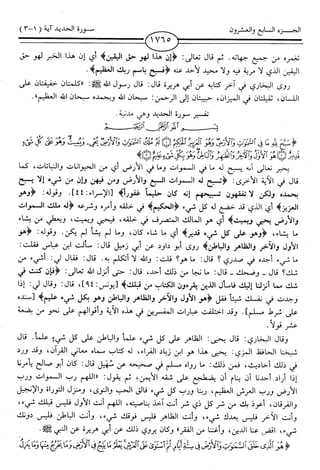 الجزء السابع والعشرون
سورة الحديد آية (١-٣)
١٧٦٥
تغمره من جميع جهاته. ثم قال تعالى: ﴿إن هذا لهو حق اليقين﴾ أي إن هذا الخبر لهو حق
اليقين الذي لا مرية فيه ولا محيد لأحد عنه ﴿فسبح باسم ربك العظيم﴾.
روى البخاري في آخر كتابه عن أبي هريرة قال: قال رسول الله ﷺ: «كلمتان خفيفتان على
اللسان، ثقيلتان في الميزان، حبيبتان إلى الرحمن: سبحان الله وبحمده سبحان الله العظيم».
تفسير سورة الحديد وهي مدنية.
بسم الله الرحمن الرحيم
﴿سبح لله ما في السموات والأرض وهو العزيز الحكيم ① له ملك السموات والأرض يحيي ويميت وهو على كل شيء
قدير ② هو الأول والآخر والظاهر والباطن وهو بكل شيء عليم ③﴾
يخبر تعالى أنه يسبح له ما في السموات وما في الأرض أي من الحيوانات والنباتات، كما
قال في الآية الأخرى: ﴿تسبح له السموات السبع والأرض ومن فيهن وإن من شيء إلا يسبح
بحمده ولكن لا تفقهون تسبيحهم إنه كان حليماً غفوراً﴾ [الإسراء: ٤٤]. وقوله: ﴿وهو
العزيز﴾ أي الذي قد خضع له كل شيء ﴿الحكيم﴾ في خلقه وأمره وشرعه ﴿له ملك السموات
والأرض يحيي ويميت﴾ أي هو المالك المتصرف في خلقه، فيحيي ويميت، ويعطي من يشاء
ما يشاء، ﴿وهو على كل شيء قدير﴾ أي ما شاء كان، وما لم يشأ لم يكن. وقوله: ﴿هو
الأول والآخر والظاهر والباطن﴾ روى أبو داود عن أبي زميل قال: سألت ابن عباس فقلت:
ما شيء أجده في صدري؟ قال: ما هو؟ قلت: والله لا أتكلم به. قال: فقال لي: أشيء من
شك؟ قال ـ وضحك ـ قال: ما نجا من ذلك أحد، قال: حتى أنزل الله تعالى: ﴿فإن كنت في
شك مما أنزلنا إليك فاسأل الذين يقرءون الكتاب من قبلك﴾ [يونس: ٩٤]، قال: وقال لي: إذا
وجدت في نفسك شيئاً فقل ﴿هو الأول والآخر والظاهر والباطن وهو بكل شيء عليم﴾ [سنده
على شرط مسلم]. وقد اختلفت عبارات المفسرين في هذه الآية وأقوالهم على نحو من بضعة
عشر قولاً.
وقال البخاري: قال يحيى: الظاهر على كل شيء علماً والباطن على كل شيء علماً. قال
شيخنا الحافظ المزي: يحيى هذا هو ابن زياد الفراء، له كتاب سماه معاني القرآن، وقد ورد
في ذلك أحاديث، فمن ذلك: ما رواه مسلم في صحيحه عن سُهيل قال: كان أبو صالح يأمرنا
إذا أراد أحدنا أن ينام أن يضطجع على شقه الأيمن، ثم يقول: «اللهم رب السموات ورب
الأرض ورب العرش العظيم، ربنا ورب كل شيء فالق الحب والنوى، ومنزل التوراة والإنجيل
والفرقان، أعوذ بك من شر كل ذي شر أنت آخذ بناصيته، اللهم أنت الأول فليس قبلك شيء،
وأنت الآخر فليس بعدك شيء، وأنت الظاهر فليس فوقك شيء، وأنت الباطن فليس دونك
شيء، اقض عنا الدين، وأغننا من الفقر» وكان يروي ذلك عن أبي هريرة عن النبي ﷺ.
﴿هو الذي خلق السموات والأرض في ستة أيام ثم استوى على العرش يعلم ما يلج في الأرض وما يخرج منها وما ينزل